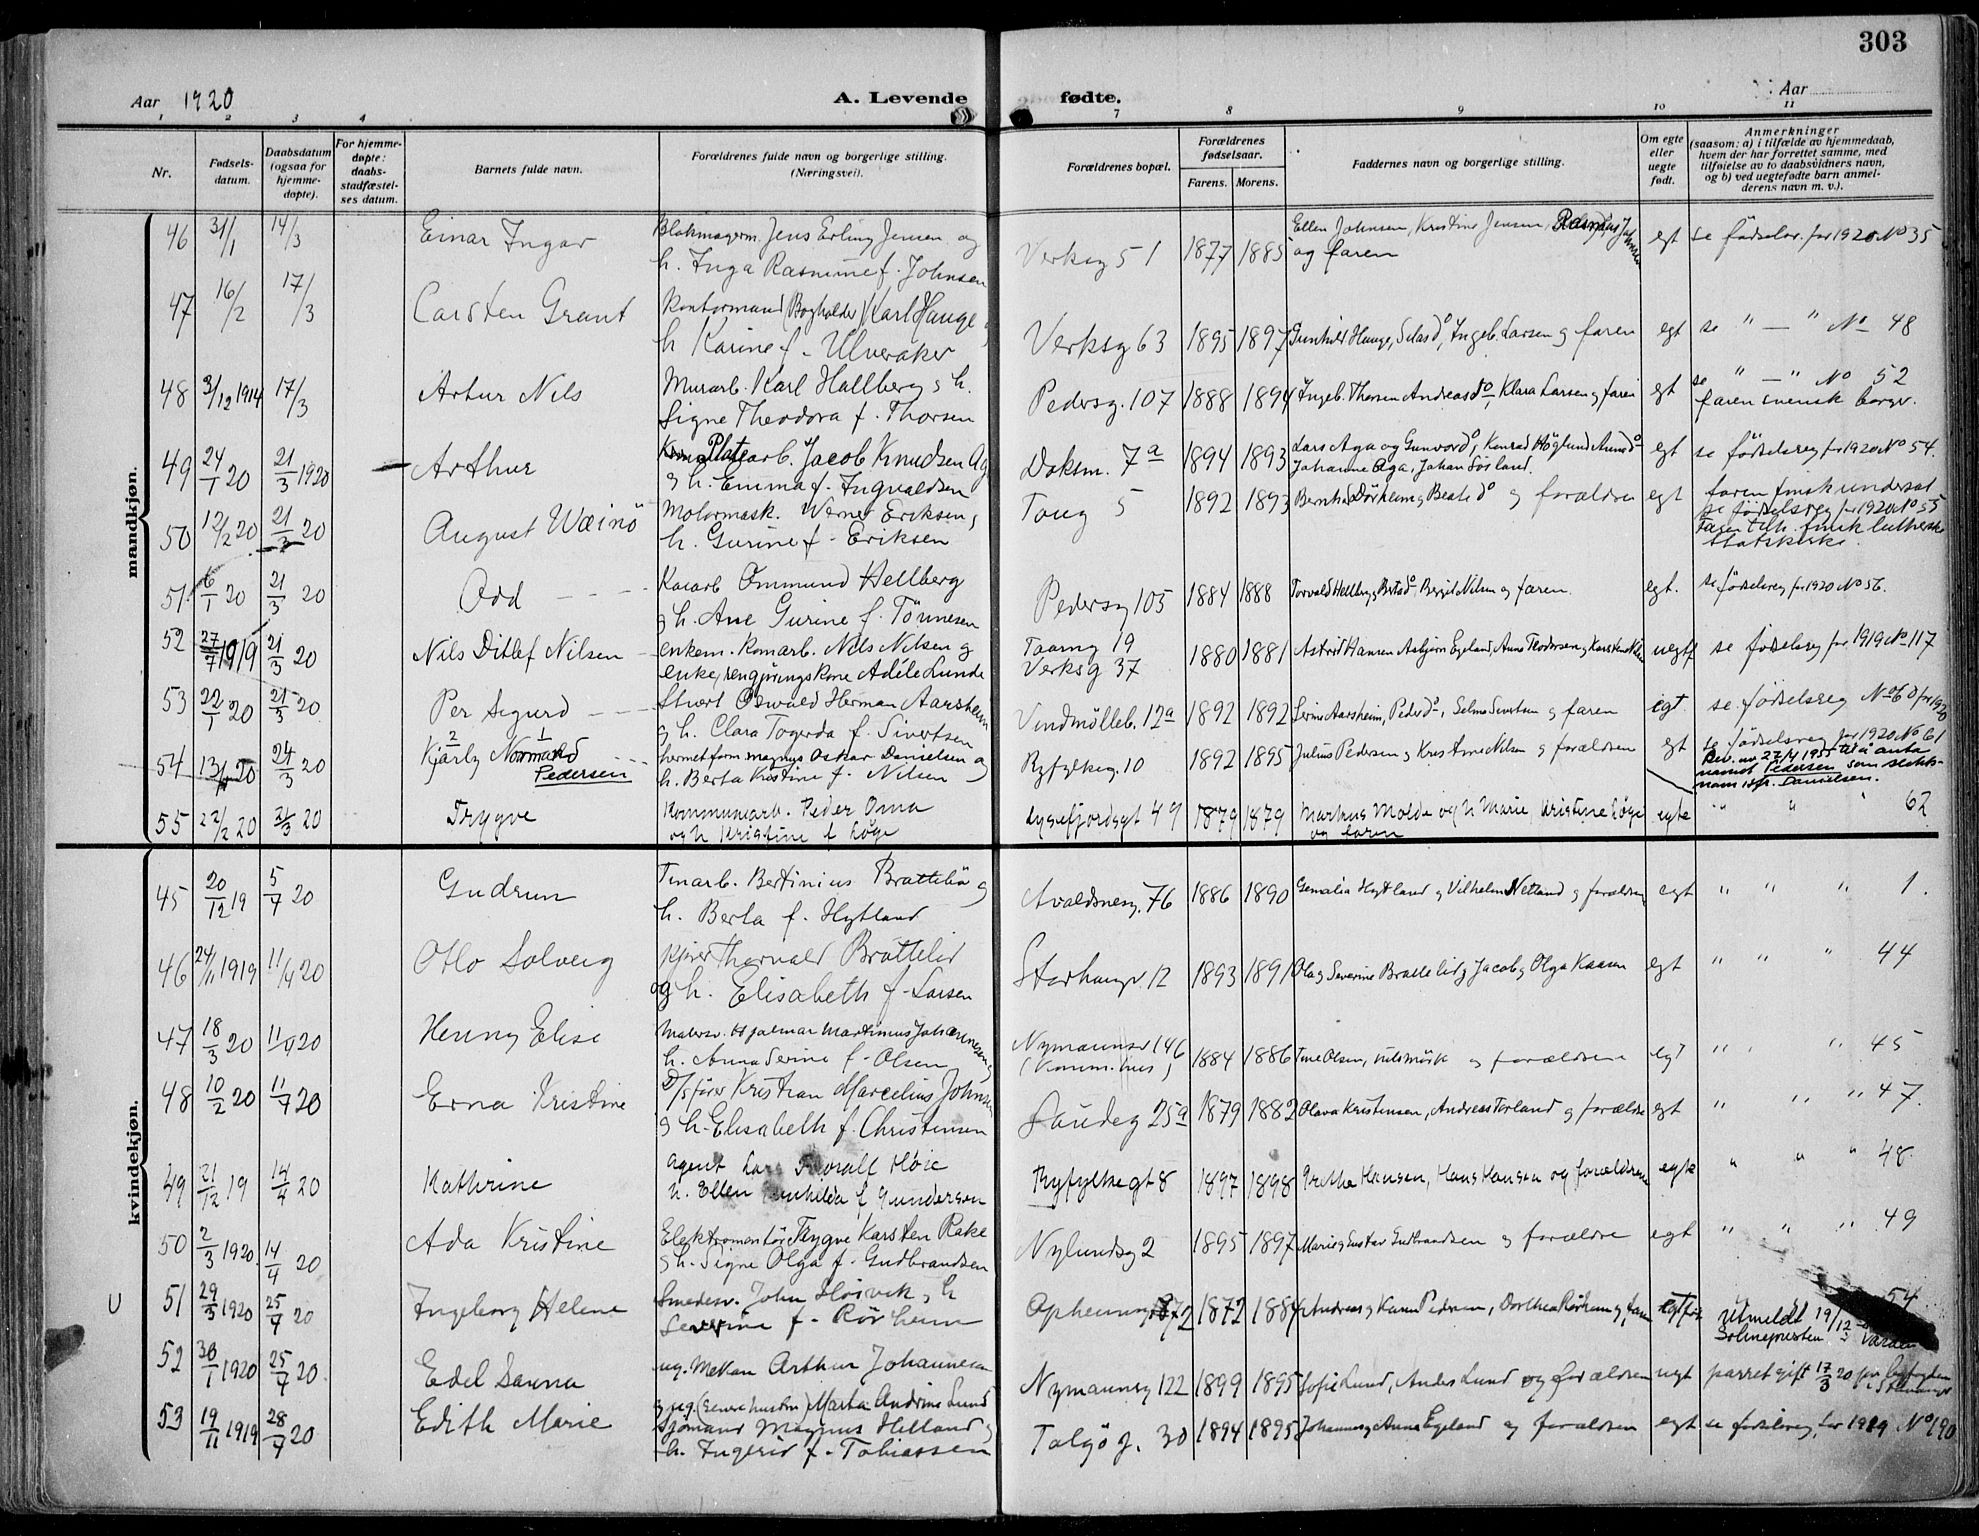 303
Aar 1920
A. Levende fødte.
Aar
1 2 3 4 7 8 9 10 11
Nr.
Fødsels-datum.
Daabsdatum (ogsaa for hjemme-døpte).
For hjemme-døpte: daabs-stadfæstel-ses datum.
Barnets fulde navn.
Forældrenes fulde navn og borgerlige stilling. (Næringsvei).
Forældrenes bopæl.
Forældrenes fødselsaar.
Farens. Morens.
Faddernes navn og borgerlige stilling.
Om egte eller uegte født.
Anmerkninger (saasom: a) i tilfælde av hjemmedaab, hvem der har forrettet samme, med tilføielse av to daabsvidners navn, og b) ved uegtefødte barn anmel-derens navn m. v.).
mandkjøn.
46 31/1 14/3 Einar Ingar Blokmagerm. Jens Erling Jensen og h. Inga Rasmine f. Johnsen Verksg 51 1877 1885 Ellen Johnsen, Kristine Jensen, Rasmus Johnsen og faren egt se fødselsr. for 1920 No 35
47 16/2 17/3 Carsten Grant Kontormand (Bogholder) Karl Hauge og h Karine f. Ulveraker Verksg 63 1895 1897 Gunhild Hauge, Silas do, Ingeb. Larsen og faren egt se " — " No 48
48 3/12 1914 17/3 Artur Nils Murarb. Karl Hallberg og h. Signe Theodora f. Thorsen Pedersg. 107 1888 1894 Ingeb. Thorsen Andreas do, Klara Larsen og faren egt se " — " No 52 faren svensk borger.
49 24/1 20 21/3 1920 Arthur Platearb. Jacob Knudsen Aga og h. Emma f. Ingvaldsen Doksm. 7a 1894 1893 Lars Aga og Gunvor do, Konrad Höglund Anna do Johanne Aga, Johan Sösland. egt se fødselsreg for 1920 No 54.
50 12/2 20 21/3 20 August Wæinö Motormask. Werner Eriksen og h. Gurine f. Eriksen Toug 5 1892 1893 Bernhard Dörheim og Beate do og forældren egt faren finsk undersat se fødselsreg for 1920 No 55 Faren tilh. finsk lutherske Statskirke.
51. 6/1 20 21/3 20 Odd Kaiarb Ommund Hellberg og h. Ane Gurine f. Tönnesen Pedersg 105 1884 1888 Torvald Hellberg Berta do, Bergit Nilsen og faren. egt. se fødselsreg for 1920 No 56.
52 27/7 1919 21/3 20 Nils Ditlef Nilsen enkem. Komarb. Nils Nilsen og enke, rengjøringskone Adéle Lunde Taarng 19 Verksg 37 1880 1881 Astrid Hansen Asbjørn Egeland, Anna Teodorsen og Karsten Nilsen uegtf se fødselsreg for 1919 No 117
53 22/1 20 21/3 20 Per Sigurd Stuert Oswald Herman Aarsheim og h. Clara Togerda f. Sivertsen Vindmølleb. 12a 1892 1892 Serine Aarsheim, Peder do, Selma Sivertsen og faren egt. se fødselsreg No 60 for 1920
54 13/1 20 24/3 20 Kjarly Normand Pedersen hermetform Magnus Oskar Danielsen og h. Berta Kristine f. Nilsen Ryfylkeg. 10 1892 1895 Julius Pedersen og Kris Arne Nilsen og forældren egt se fødselsreg for 1920 No 61 Bev. av 27/4 195 til å anta navnet Pedersen som slekts-navn istf. Danielsen.
55 22/2 20 21/3 20 Trygve Kommunearb. Peder Oma og h Kristine f Løge Lysefjordsgt 49 1879 1879 Markus Molde og h Marie, Kristine Løge og faren egte " " " 62
kvindekjøn.
45 20/12 19 5/4 20 Gudrun Tinarb. Bertinius Brattebö og h. Berta f. Hytland Avaldsnesg. 76 1886 1890 Gemalia Hytland og Vilhelm Netland og forældren egt " " " 1.
46 24/11 1919 11/4 20 Otlo Solveig kjører Thorvald Brattelid og h. Elisabeth f. Larsen Storhaugv. 12 1893 1891 Ola og Severine Brattelid, Jacob og Olga Kaasen egt " " " 44
47 18/3 20 11/4 20 Henny Elise Malersv. Hjalmar Martinius Johannesen og h. Anna Serine f. Olsen Nymannsv 146 (Komm. hus) 1884 1886 Tine Olsen, og forældrene egt " " " 45
48 10/2 20 11/4 20 Erna Kristine D/s fører Kristian Marcelius Johnsen og h. Elisabeth f. Christensen Saudeg 25a 1879 1882 Olava Kristensen, Andreas Torland og forældre egt " " " 47.
49 21/12 19 14/4 20 Kathrine Agent Lars Thorall Høie h. Ellen Gunhilda f Gundersen Ryfylkegt 8 1897 1898 Grethe Hansen, Hans Hansen og forældrene egte " " " 48
50 2/3 1920. 14/4 20 Ada Kristine Elektromontör Trygve Karsten Rake og h. Signe Olga f. Gudbrandsen Nylundsg 2 1895 1897 Marie og Gustav Gudbrandsen og forældre egt " " " 49
U 51 29/3 1920 25/4 20 Ingeborg Helene Smedesv. John Høivik og h Severine f. Rörheim Opheimsg 72 1872 1884 Andreas og Karen Pedersen, Dorthea Rörheim og faren egtfør 54 Utmeldt 19/12 Solnepresten Varden
52 30/1 1920 25/4 20 Edel Sanna ug. Mekan Arthur Johannesen og ug. (Senere hustru) Marta Andrine Lund Nymannsg 122 1899 1895 Sofie Lund, Anders Lund og forældren uegt parret gift 17/3 20 for byfogden i Stavanger
53 19/11 1919 28/4 20 Edith Marie Sjømand Magnus Helland og h. Ingerid f. Tobiassen Talgö g. 30 1894 1895 Johannes og Anna Egeland og forældren egt se fødselsreg. for 1919 No 190